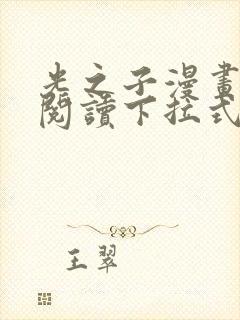 光之子漫畫
閱讀下拉式
王翠